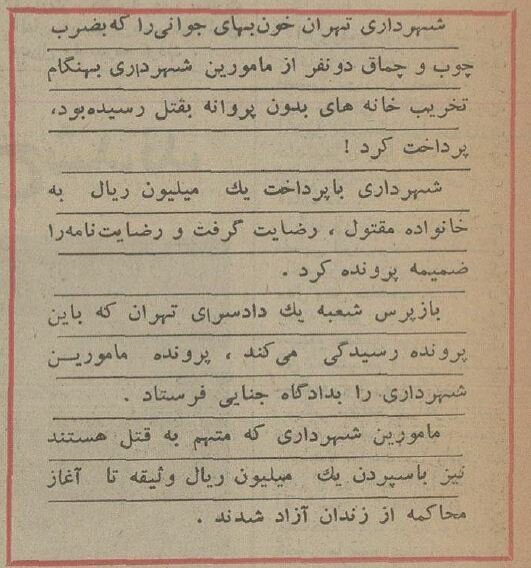 شهرداری تهران خون‌بهای جوانی‌را که‌بضرب
چوب و چماق دو نفر از مامورین شهرداری بهنگام
تخریب خانه های بدون پروانه بقتل رسیده‌بود،
پرداخت کرد !
شهرداری باپرداخت یك میلیون ریال به
خانواده مقتول ، رضایت گرفت و رضایت‌نامه‌را
ضمیمه پرونده کرد .
بازپرس شعبه یك دادسرای تهران که باین
پرونده رسیدگی می‌کند ، پرونده مامورین
شهرداری را بدادگاه جنایی فرستاد .
مامورین شهرداری که متهم به قتل هستند
نیز باسپردن یك میلیون ریال وثیقه تا آغاز
محاکمه از زندان آزاد شدند .